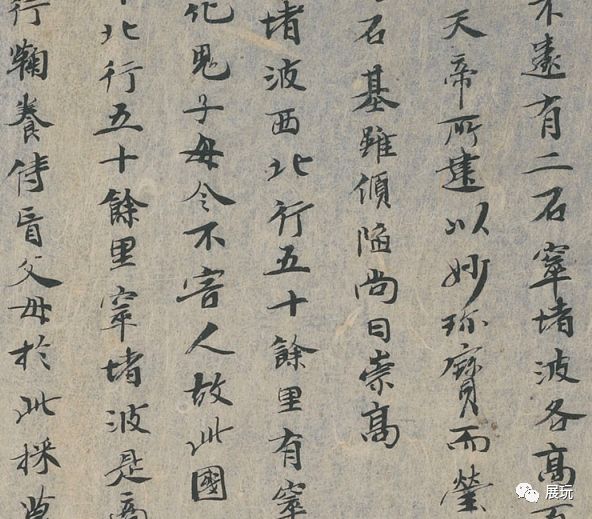 不遠有二石窣堵波各高
天帝所建以妙珎寶而瑩
石基雖傾陷尚曰崇高
堵波西北行五十餘里有窣
化鬼子母令不害人故此國
北行五十餘里窣堵波是商
行鞠養侍盲父母於此採
展玩